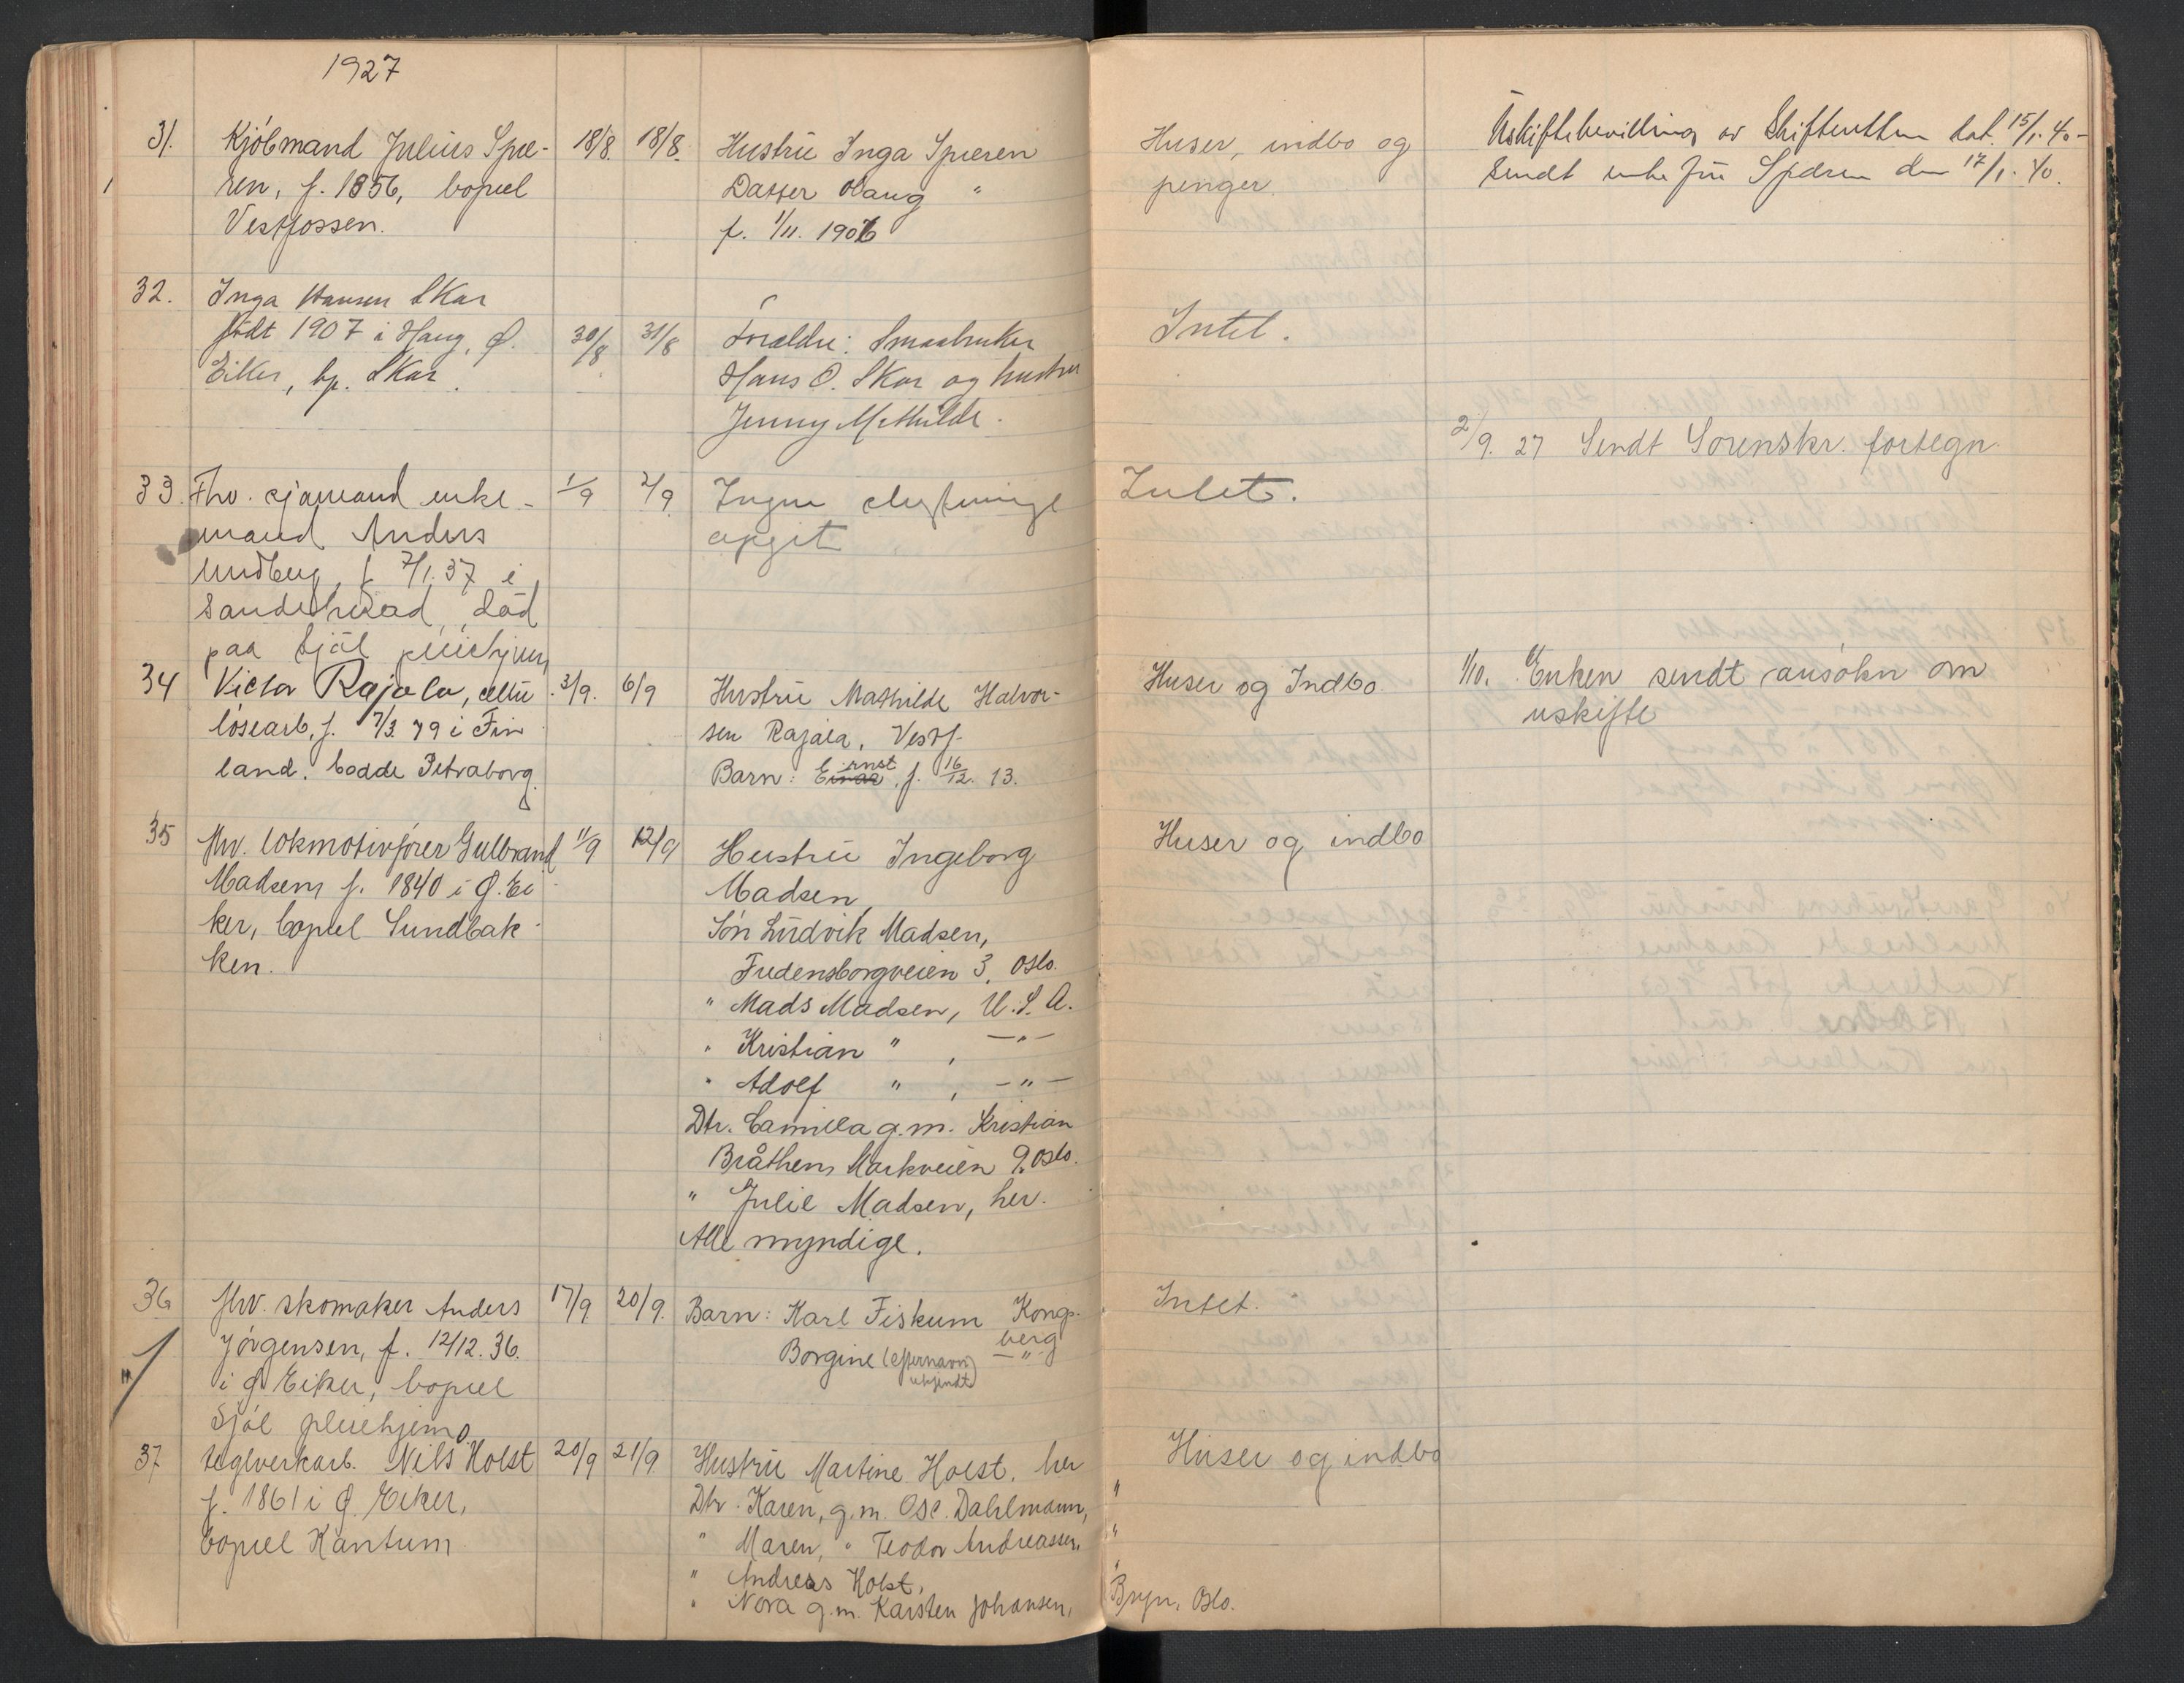 1927
31. Kjöbmand Julius Spee- 18/8. 18/8. Hustru Inga Speeren Huser, indbo og Uskiftebevilling av Skifteretten dat. 15/1. 40 -
ren, f. 1856, bopæl Datter Haug " penger. Sendt enkefru Speren den 17/1. 40.
Vestfossen. f. 1/11. 1906
32. Inga Hansen Skar
født 1907 i Haug, Ø. 30/8 31/8 Forældre: Smaabruker Intet.
Eiker, bp. Skar. Hans O. Skar og hustru
Jenny Mathilde.
2/9. 27 Sendt Sorenskr. fortegn.
33. Fhv. sjømand enke- 1/9 2/9 Ingen Intet.
mand Anders opgit
Lindberg, f. 7/1. 37 i
Sandeherad, död
paa Sjöl pleiehjem
34 Victor Rajala, cellu- 3/9. 6/9 Hustru Mathilde Halvor- Huser og Indbo. 1/10. Enken sendt ansökn om
losearb, f. 7/3 79 i Fin sen Rajala, Vestf. uskifte
land, bodde Petraborg. Barn: Ernst, f. 16/12. 13.
35 fhv. lokmotivfører Gulbrand 11/9 12/9 Hustru Ingeborg Huser og indbo
Madsen, f. 1840 i Ø. Ei- Madsen
ker, bopæl Sundbak- Sön Ludvik Madsen,
ken. Fredensborgveien 3, Oslo.
" Mads Madsen, U.S.A.
" Kristian " , — " —
" Adolf " , — " —
Dtr. Camilla g.m. Kristian
Bråthen, Markveien 9. Oslo.
" Julie Madsen, her.
Alle myndige.
36 fhv. skomaker Anders 17/9 20/9. Barn: Karl Fiskum Kongs- Intet.
Jörgensen, f. 12/12. 36. berg
i Ø Eiker, bopæl Borgine (efternavn — " —
ukjendt)
Sjöl pleiehjem.
37 teglverkarb. Nils Holst 20/9 21/9 Hustru Martine Holst, her Huser og indbo
f. 1861 i Ø. Eiker, Dtr. Karen, g.m. Osc. Dahlmann, "
bopæl Kantum. " Maren, " Teodor Andreassen, "
" Andreas Holst, "
" Nora g.m. Karsten Johansen, Bryn, Oslo.